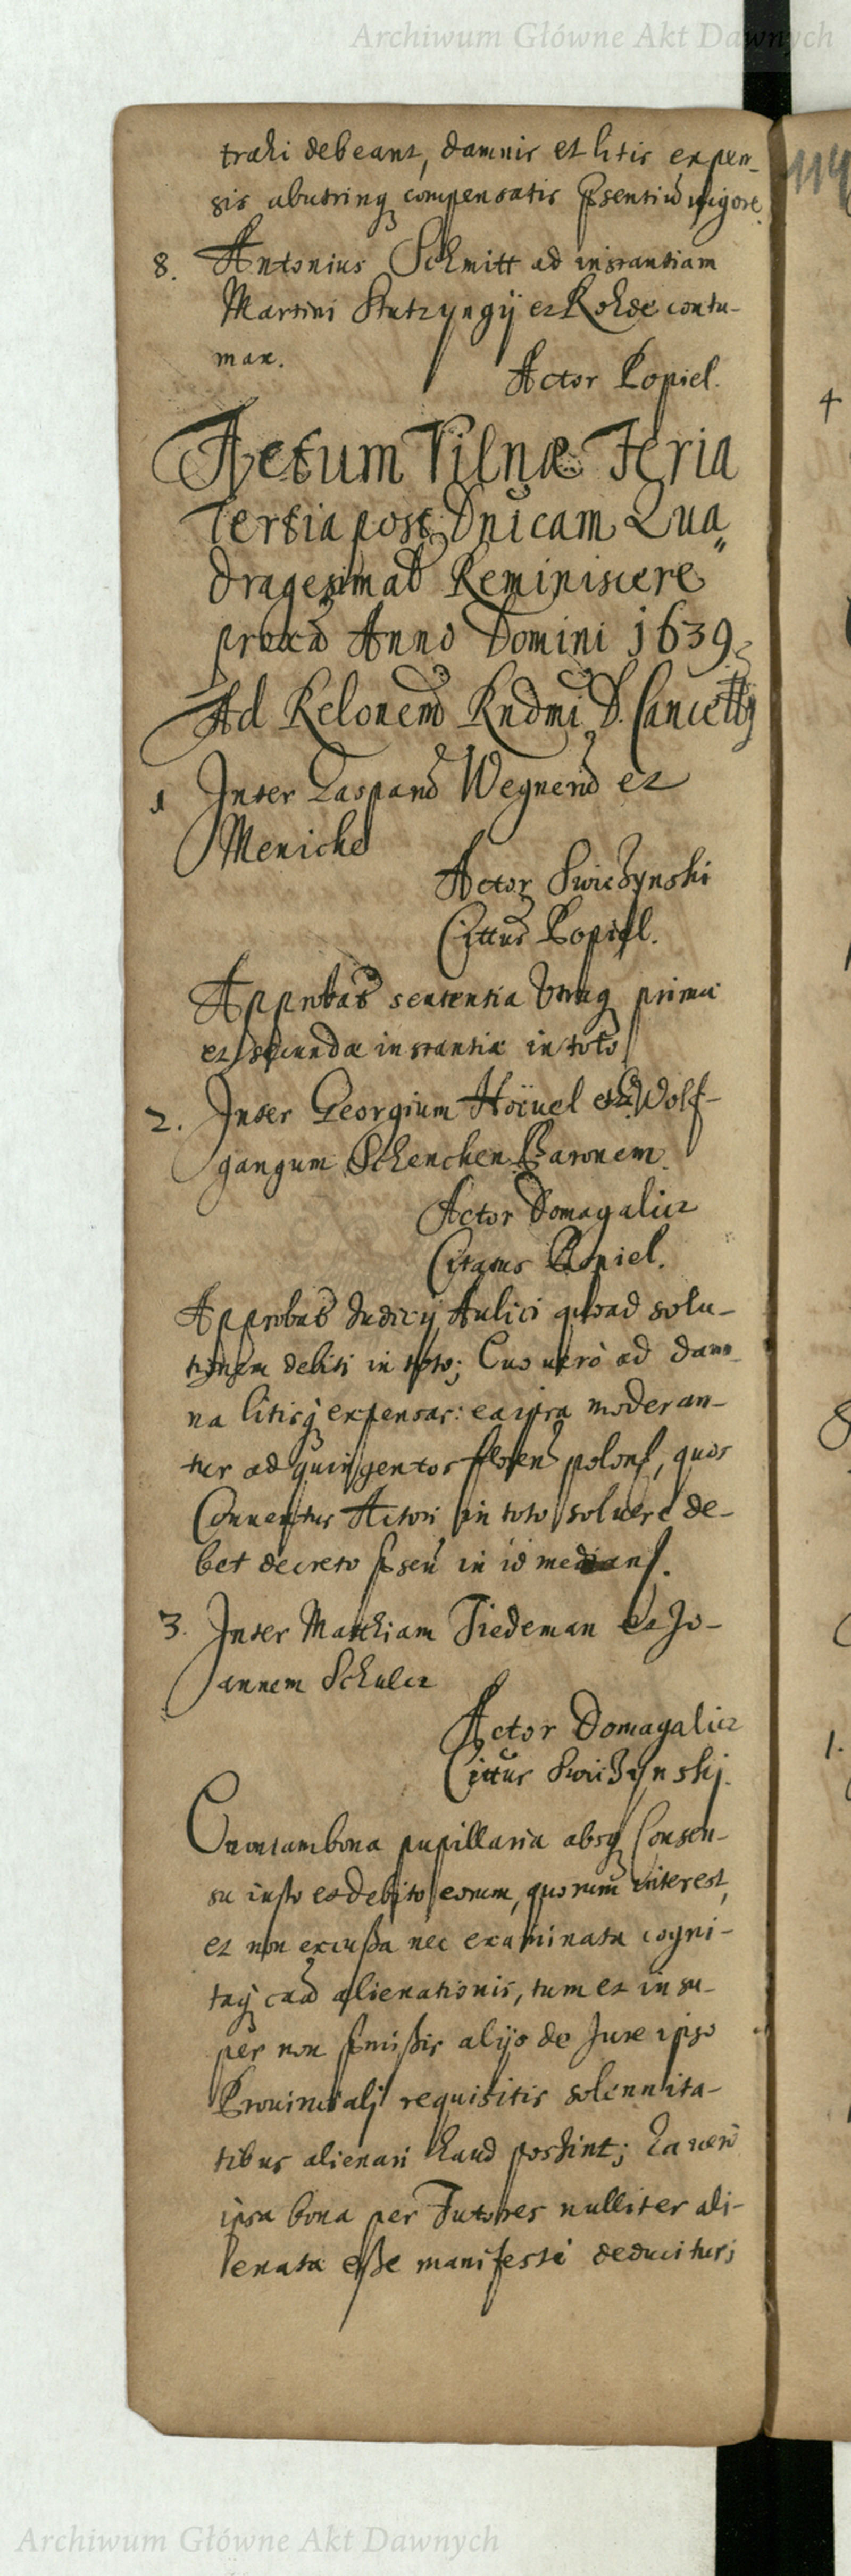 Archiwum Główne Akt Dawnych
trahi debeant, damnis et litis expen-
sis abutrinq compensatis Psentiu vigore.
114
8. Antonius Schmitt ad instantiam
Martini Stutzyngij et Rohde contu-
max.
Actor Popiel.
Actum Vilnæ Feria
Tertia post Dnicam Qua
dragesimal Reminiscere
proxa Anno Domini 1639
Ad Relonem Rndmi D. Cancellj
1 Inter Casparu Wegneru et
Meniche
Actor Swieżynski
Cittus Popiel.
Approbat sententia utraq primæ
et secundæ instantiæ in toto
2. Inter Georgium et Wolf-
gangum Schenchen Baronem.
Actor Domagalicz
Citatus Popiel.
Approbat Judicij Aulici quoad solu-
tionem debiti in toto; Quo uero ad dam-
na litisq expensas: ea ipsa moderan-
tur ad quingentos floren polon, quos
Conuentus Actori in toto soluere de-
bet decreto Psen in id
3. Inter Matthiam Tiedeman et Jo-
annem Schulcz
Actor Domagalicz
Cittus Swieżynskj.
Quoniam bona pupillaria absq Consen-
su iusto et debito eorum, quorum interest,
et non excussa nec examinata cogni-
taq caa alienationis, tum et insu-
per non Pmissis alijs de Jure ipso
Prouincialj requisitis solennita-
tibus alienari haud possint; Ea uero
ipsa bona per Tutores nulliter ali-
enata esse manifeste deducitur;
Archiwum Główne Akt Dawnych